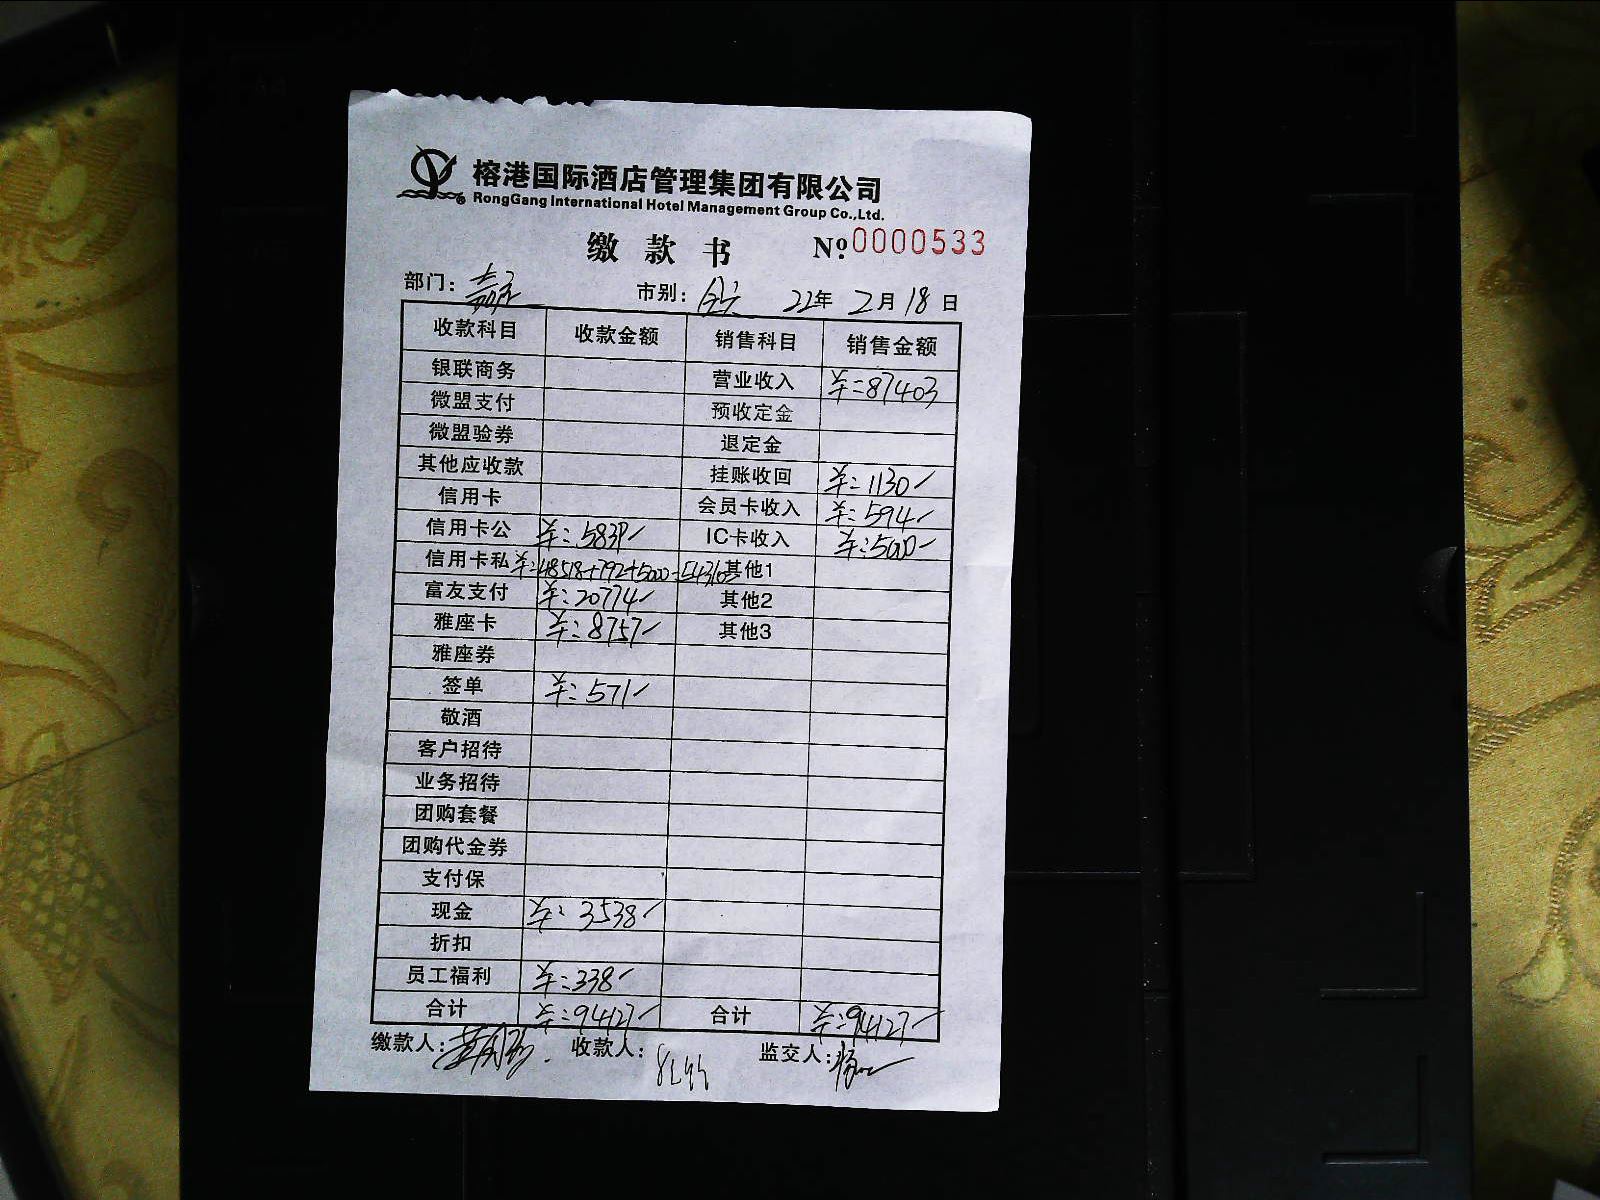 榕港国际酒店管理集团有限公司
RongGang International Hotel Management Group Co.,Ltd.
缴款书 Nº:0000533
部门: 市别: 22年 2月 18日
收款科目 收款金额 销售科目 销售金额
银联商务 营业收入 ¥:87403
微盟支付 预收定金
微盟验券 退定金
其他应收款 挂账收回 ¥:1130/
信用卡 会员卡收入 ¥:594/
信用卡公 ¥:5839/ IC卡收入 ¥:5000/
信用卡私 ¥:48518+792+5000=54310 其他1
富友支付 ¥:20774/ 其他2
雅座卡 ¥:8757/ 其他3
雅座券
签单 ¥:571/
敬酒
客户招待
业务招待
团购套餐
团购代金券
支付保
现金 ¥:3538/
折扣
员工福利 ¥:338/
合计 ¥:94127/ 合计 ¥:94127/
缴款人: 收款人: 监交人: